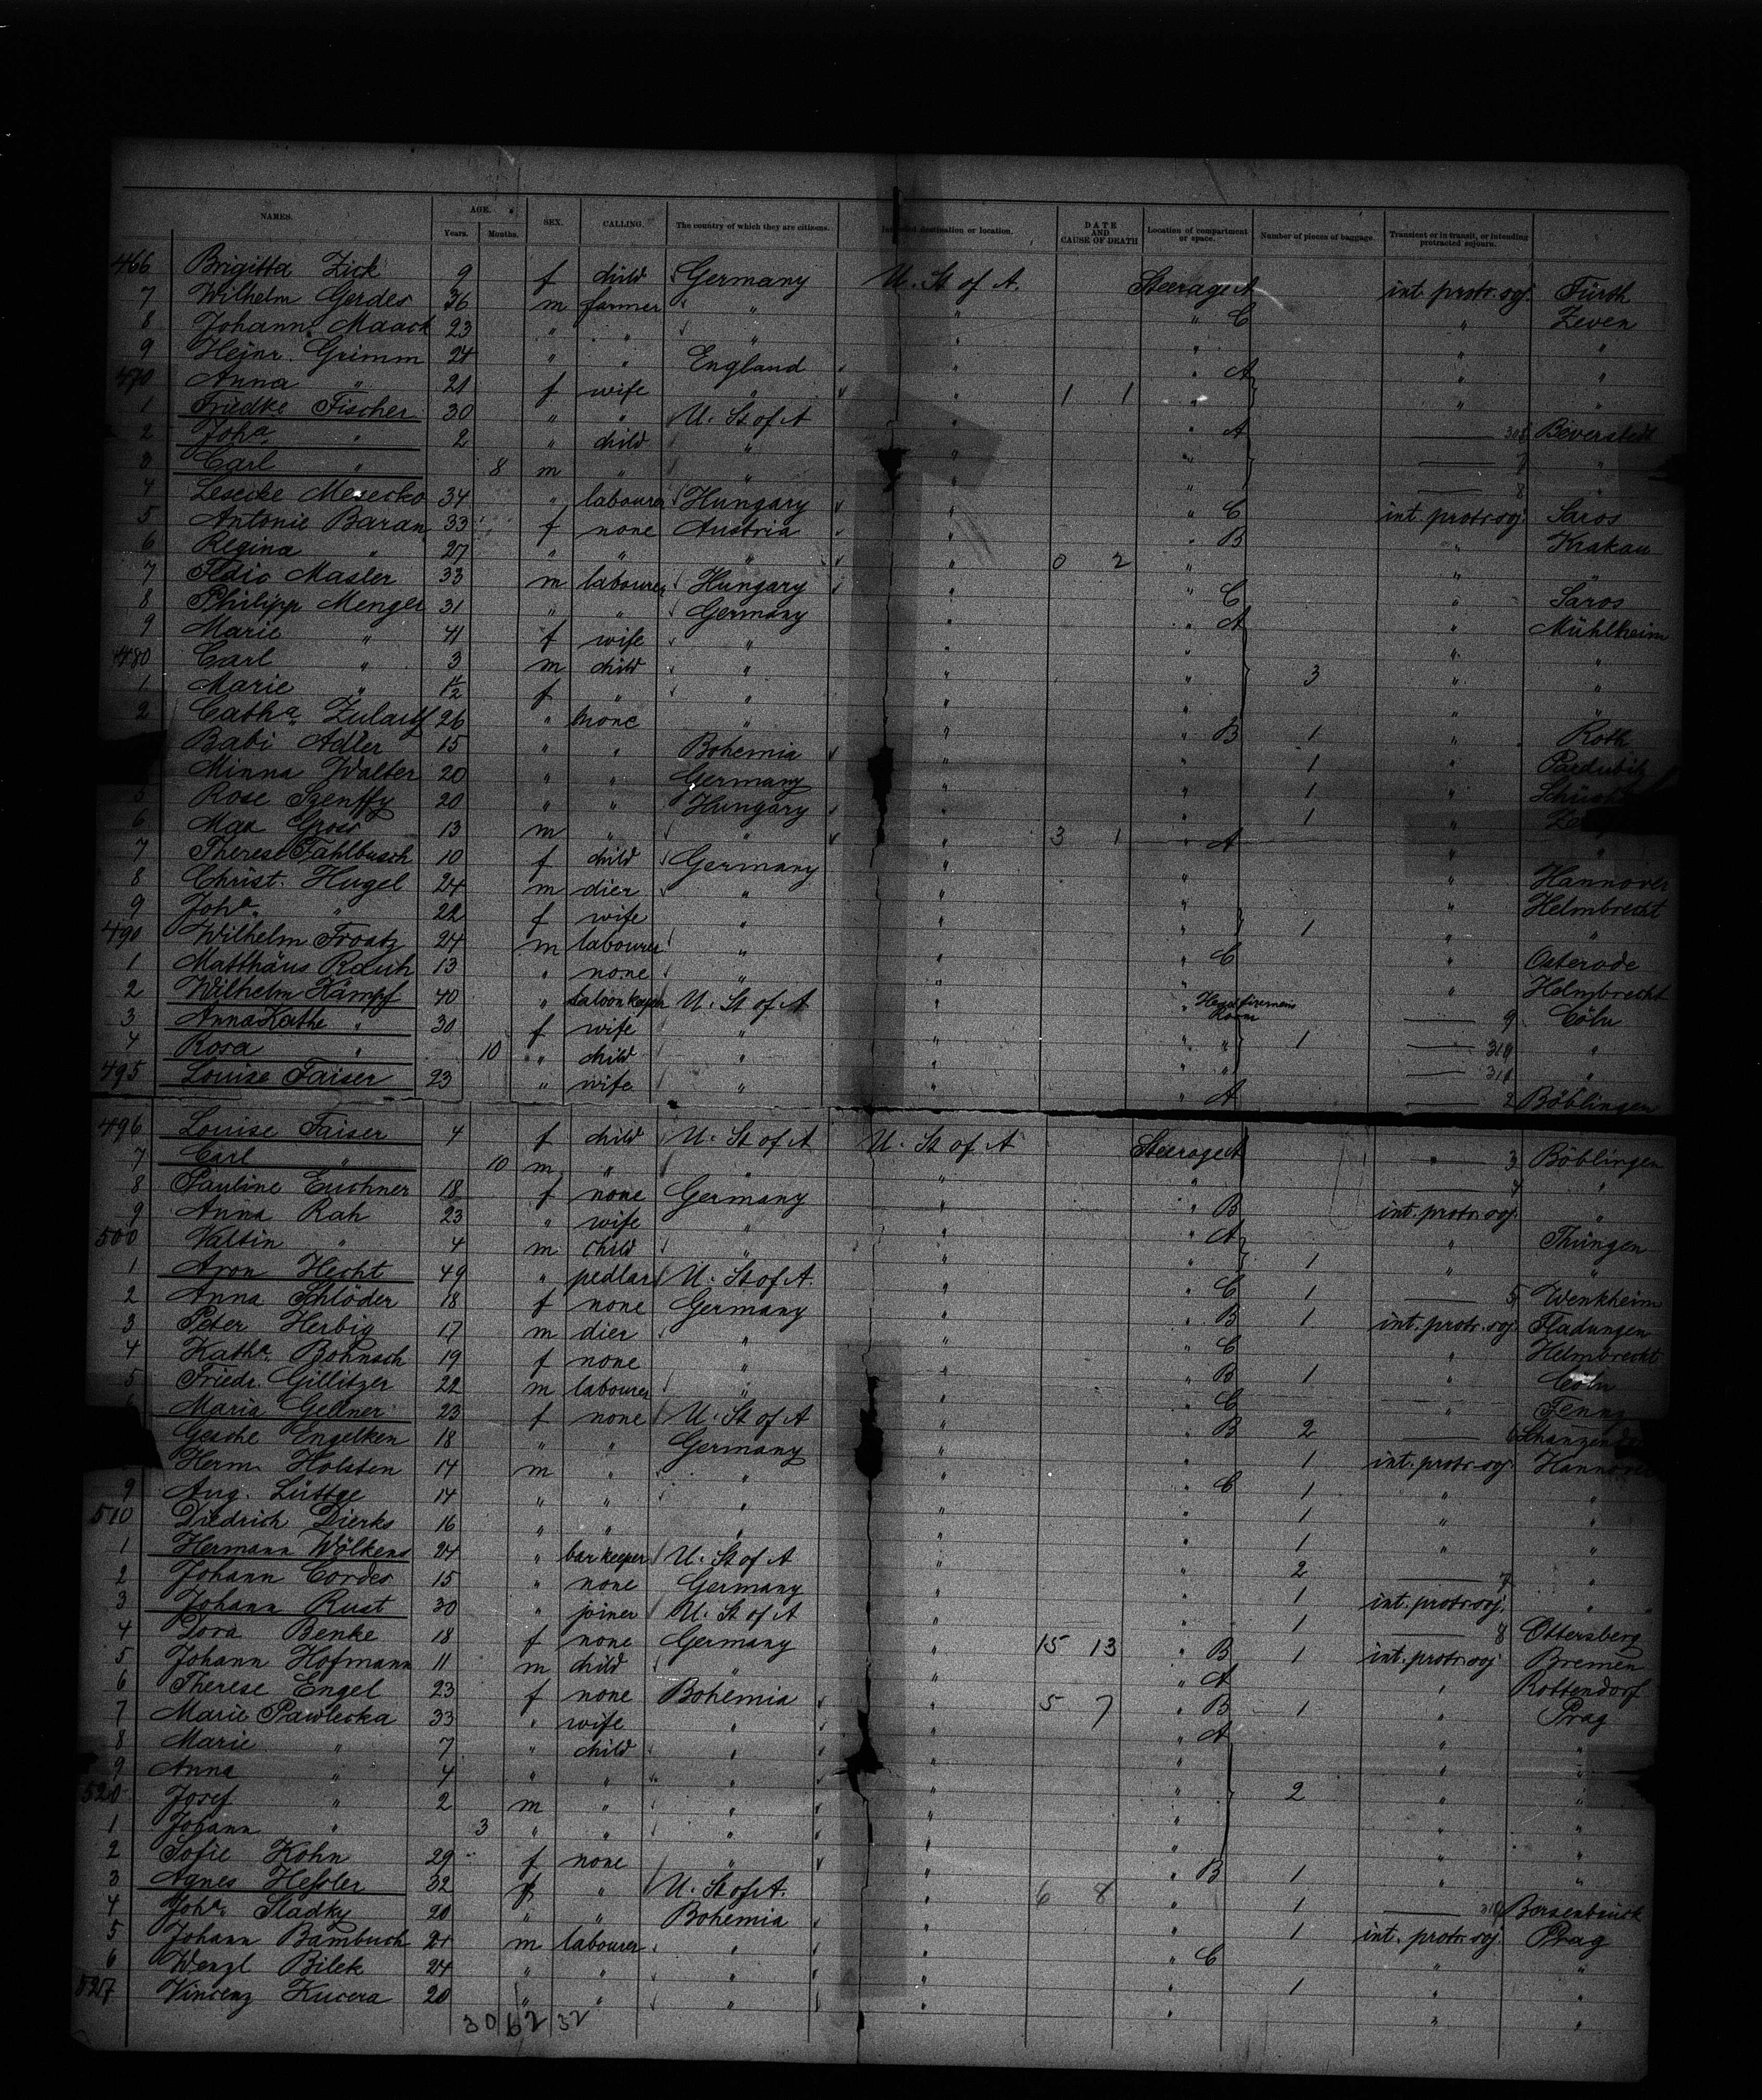 NAMES. AGE. Years. Months. SEX. CALLING. The country of which they are citizens. Intended destination or location. DATE AND CAUSE OF DEATH Location of compartment or space. Number of pieces of baggage. Transient or in transit, or intending protracted sojourn.
466 Brigitta Zick 9 f child Germany U. St of A. Steerage A int. protr. soj. Fürth
7 Wilhelm Gerdes 36 m farmer " " " C " Zeven
8 Johann Maack 23 " " " " " " "
9 Heinr. Grimm 24 " " England " " A " "
470 Anna " 21 f wife " " 1 1 " " "
1 Friedke Fischer 30 " " U. St of A " " A 308 Beverstedt
2 Joha " 2 " child " " " "
3 Carl " 8 m " " " " 8 "
4 Lesecke Mesecko 34 " labourer Hungary " " C int. protr. soj. Saros
5 Antonie Baran 33 f none Austria " " B " Krakau
6 Regina " 27 " " " " 0 2 " " "
7 Fedio Masler 33 m labourer Hungary " " C " Saros
8 Philipp Menger 31 " " Germany " " A " Mühlheim
9 Marie " 41 f wife " " " " "
480 Carl " 3 m child " " " 3 " "
1 Marie " 1½ f " " " " " "
2 Catha Zulauf 26 " none " " " B 1 " Roth
Babi Adler 15 " " Bohemia " " 1 " Pardubitz
Minna Walter 20 " " Germany " " 1 "
5 Rose Szenffy 20 " " Hungary " " 1 "
6 Max Gross 13 m " " " 3 1 " A " "
7 Therese Fahlbusch 10 f child Germany " " " Hannover
8 Christ. Hugel 24 m dier " " " " Helmbrecht
9 Joha " 22 f wife " " " 1 " "
490 Wilhelm Troatz 24 m labourer " " " C Osterode
1 Matthäus Rauh 13 " none " " " " Helmbrecht
2 Wilhelm Kämpf 40 " saloonkeeper U. St of A " " Head firemens Room 9 Cöln
3 Anna Kathe " 30 f wife " " " " 1 310 "
4 Rosa " 10 " child " " " " 311 "
495 Louise Faiser 23 " wife " " " A 2 Böblingen
496 Louise Faiser 4 f child U. St of A U. St of A Steerage A 3 Böblingen
7 Carl " 10 m " " " " 4 "
8 Pauline Euchner 18 f none Germany " " B int. protr. soj. "
9 Anna Rah 23 " wife " " " A " Thüngen
500 Valtin " 4 m child " " " 1 " "
1 Aron Hecht 49 " pedlar U. St of A. " " C 1 5 Wenkheim
2 Anna Schlöder 18 f none Germany " " B 1 int. protr. soj. Fladungen
3 Peter Herbig 17 m dier " " " C " Helmbrecht
4 Katha Bohnsch 19 f none " " " B 1 " Cöln
5 Friedr. Gillitzer 22 m labourer " " " C "
Maria Gellner 23 f none U. St of A " " B 2 6
Gesche Engelken 18 " " Germany " " 1 int. protr. soj. Hannover
Herm. Holsten 14 m " " " " C 1 " "
9 Aug. Lüttge 14 " " " " " 1 " "
510 Diedrich Dierks 16 " " " " " 1 " "
1 Hermann Wölkens 24 " barkeeper U. St of A " " 2 7 "
2 Johann Cordes 15 " none Germany " " 1 int. protr. soj. "
3 Johann Rust 30 " joiner U. St of A " " 1 8 Ottersberg
4 Dora Benke 18 f none Germany " 15 13 " B 1 int. protr. soj Bremen
5 Johann Hofmann 11 m child " " " A " Rottendorf
6 Therese Engel 23 f none Bohemia " 5 7 " B 1 " Prag
7 Marie Pawlecka 33 " wife " " " A " "
8 Marie " 7 " child " " " " "
9 Anna " 4 " " " " " 2 " "
520 Josef " 2 m " " " " " "
1 Johann " 3 " " " " " " "
2 Sofie Kohn 29 f none " " " B 1 " "
3 Agnes Hessler 32 f " U. St of A. " 6 8 " 1 Bersenbrück
4 Joha Sladky 20 " " Bohemia " " 1 int. protr. soj. Prag
5 Johann Bambuch 21 m labourer " " " C " "
6 Wenzl Bilek 24 " " " " " 1 " "
527 Vincenz Kucera 20 " " " " " " "
30 62 32